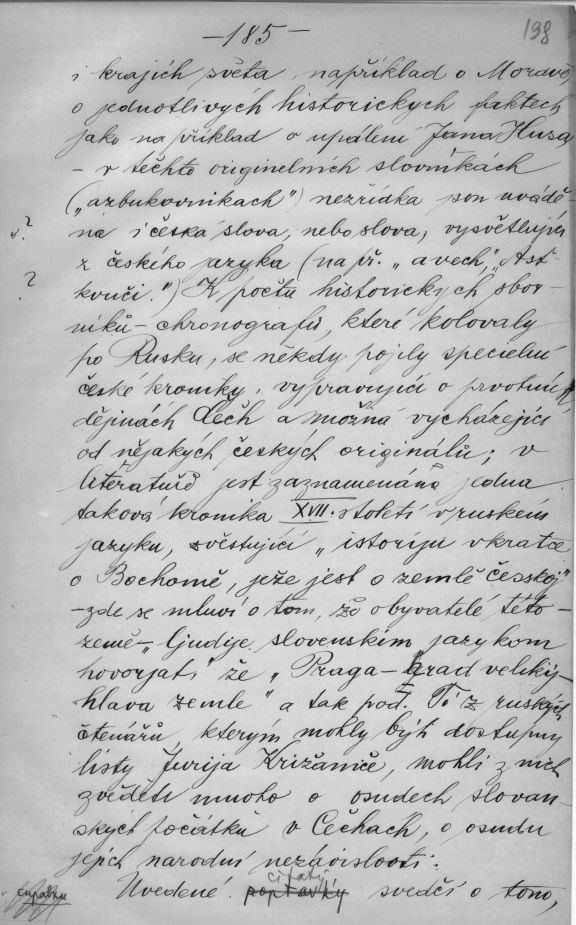 -185-
198
i krajích světa, například o Moravě,
o jednotlivých historických faktech
jako na příklad o upálení Jana Husa
- v těchto originelních slovníkách
("azbukovnikach") nezřídka jsou uvádě-
„? né i česká slova, nebo slova, vysvětlující
? z českého jazyka (např. „avech", „Ast-
kruči.") K počtu historických sbor-
níků - chronografů, které kolovaly
po Rusku, se někdy pojily specielní
české kroniky, vypravující o prvotních
dějinách Čech a možná vycházející
od nějakých českých originálů; v
literatuře jest zaznamenána jedna
takova kronika XVII. století v ruském
jazyku, zvěstující „istoriju vkratce
o Bochomě, ježe jest o zemlě česskoj"
- zde se mluví o tom, že obyvatelé této
země - „ljudije slovenskim jazykom
hovorjat" že „Praga - grad velikij -
hlava zemle" a tak pod. Ti z ruských
čtenářů, kterým mohly býti dostupny
listy Jurija Križaniče, mohli z nich
zvěděti mnoho o osudech slovan-
ských počátků v Čechach, o osudu
jejich narodní nezávislosti.
citáty
Uvedené svedčí o tom,